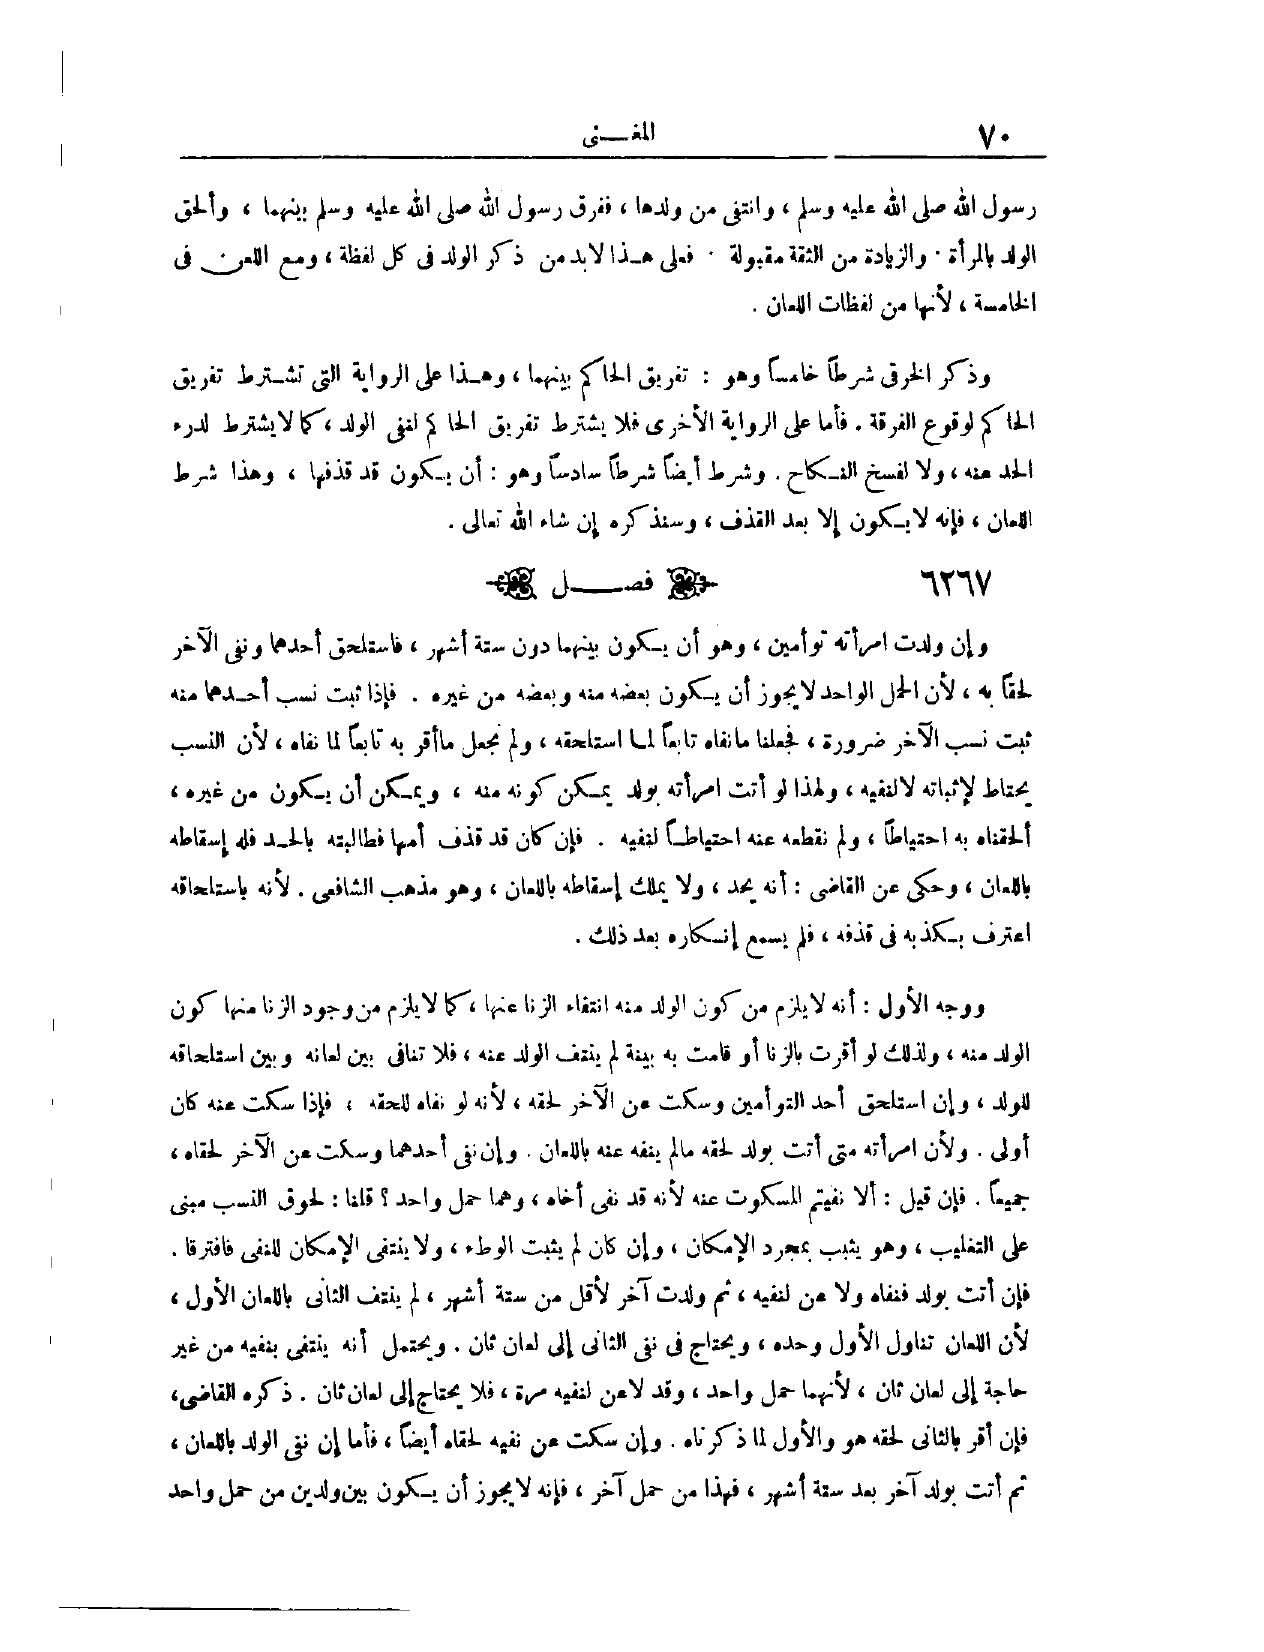 ٧٠ المغـــنى
رسول الله صلى الله عليه وسلم ، وانتفى من ولدها ، ففرق رسول الله صلى الله عليه وسلم بينهما ، وألحق
الولد بالمرأة . والزيادة من الثقة مقبولة . فعلى هـذا لابد من ذكر الولد فى كل لفظة ، ومع اللعن فى
الخامسة ، لأنها من لفظات اللعان .
وذكر الخرقى شرطاً خامساً وهو : تفريق الحاكم بينهما ، وهـذا على الرواية التى تشـترط تفريق
الحاكم لوقوع الفرقة . فأما على الرواية الأخرى فلا يشترط تفريق الحاكم لنفى الولد ، كما لا يشترط لدرء
الحد عنه ، ولا لفسخ النـكاح . وشرط أيضاً شرطاً سادساً وهو : أن يـكون قد قذفها ، وهذا شرط
اللعان ، فإنه لا يـكون إلا بعد القذف ، وسنذكره إن شاء الله تعالى .
٦٢٦٧ فصـــــل
وإن ولدت امرأته توأمين ، وهو أن يـكون بينهما دون ستة أشهر ، فاستلحق أحدهما ونفى الآخر
لحقاً به ، لأن الحمل الواحد لا يجوز أن يـكون بعضه منه وبعضه من غيره . فإذا ثبت نسب أحـدهما منه
ثبت نسب الآخر ضرورة ، فجعلنا ما نفاه تابعاً لمـا استلحقه ، ولم نجعل ما أقر به تابعاً لما نفاه ، لأن النسب
يحتاط لإثباته لا لنفيه ، ولهذا لو أتت امرأته بولد يمـكن كونه منه ، ويمـكن أن يـكون من غيره ،
ألحقناه به احتياطاً ، ولم نقطعه عنه احتياطـاً لنفيه . فإن كان قد قذف أمها فطالبته بالحـد فله إسقاطه
باللعان ، وحكى عن القاضى : أنه يحد ، ولا يملك إسقاطه باللعان ، وهو مذهب الشافعى . لأنه باستلحاقه
اعترف بـكذبه فى قذفه ، فلم يسمع إنـكاره بعد ذلك .
ووجه الأول : أنه لا يلزم من كون الولد منه انتفاء الزنا عنها ، كما لا يلزم من وجود الزنا منها كون
الولد منه ، ولذلك لو أقرت بالزنا أو قامت به بينة لم ينتف الولد عنه ، فلا تنافى بين لعانه وبين استلحاقه
للولد ، وإن استلحق أحد التوأمين وسكت عن الآخر لحقه ، لأنه لو نفاه للحقه ، فإذا سكت عنه كان
أولى . ولأن امرأته متى أتت بولد لحقه مالم ينفه عنه باللعان . وإن نفى أحدهما وسكت عن الآخر لحقاه ،
جميعاً . فإن قيل : ألا نفيتم المسكوت عنه لأنه قد نفى أخاه ، وهما حمل واحد ؟ قلنا : لحوق النسب مبنى
على التغليب ، وهو يثبب بمجرد الإمكان ، وإن كان لم يثبت الوطء ، ولا ينتفى الإمكان للنفى فافترقا .
فإن أتت بولد فنفاه ولا عن لنفيه ، ثم ولدت آخر لأقل من ستة أشهر ، لم ينتف الثانى باللعان الأول ،
لأن اللعان تناول الأول وحده ، ويحتاج فى نفى الثانى إلى لعان ثان . ويحتمل أنه ينتفى بنفيه من غير
حاجة إلى لعان ثان ، لأنهما حمل واحد ، وقد لاعن لنفيه مرة ، فلا يحتاج إلى لعان ثان . ذكره القاضى،
فإن أقر بالثانى لحقه هو والأول لما ذكرناه . وإن سكت عن نفيه لحقاه أيضاً ، فأما إن نفى الولد باللعان ،
ثم أتت بولد آخر بعد ستة أشهر ، فهذا من حمل آخر ، فإنه لا يجوز أن يـكون بين ولدين من حمل واحد